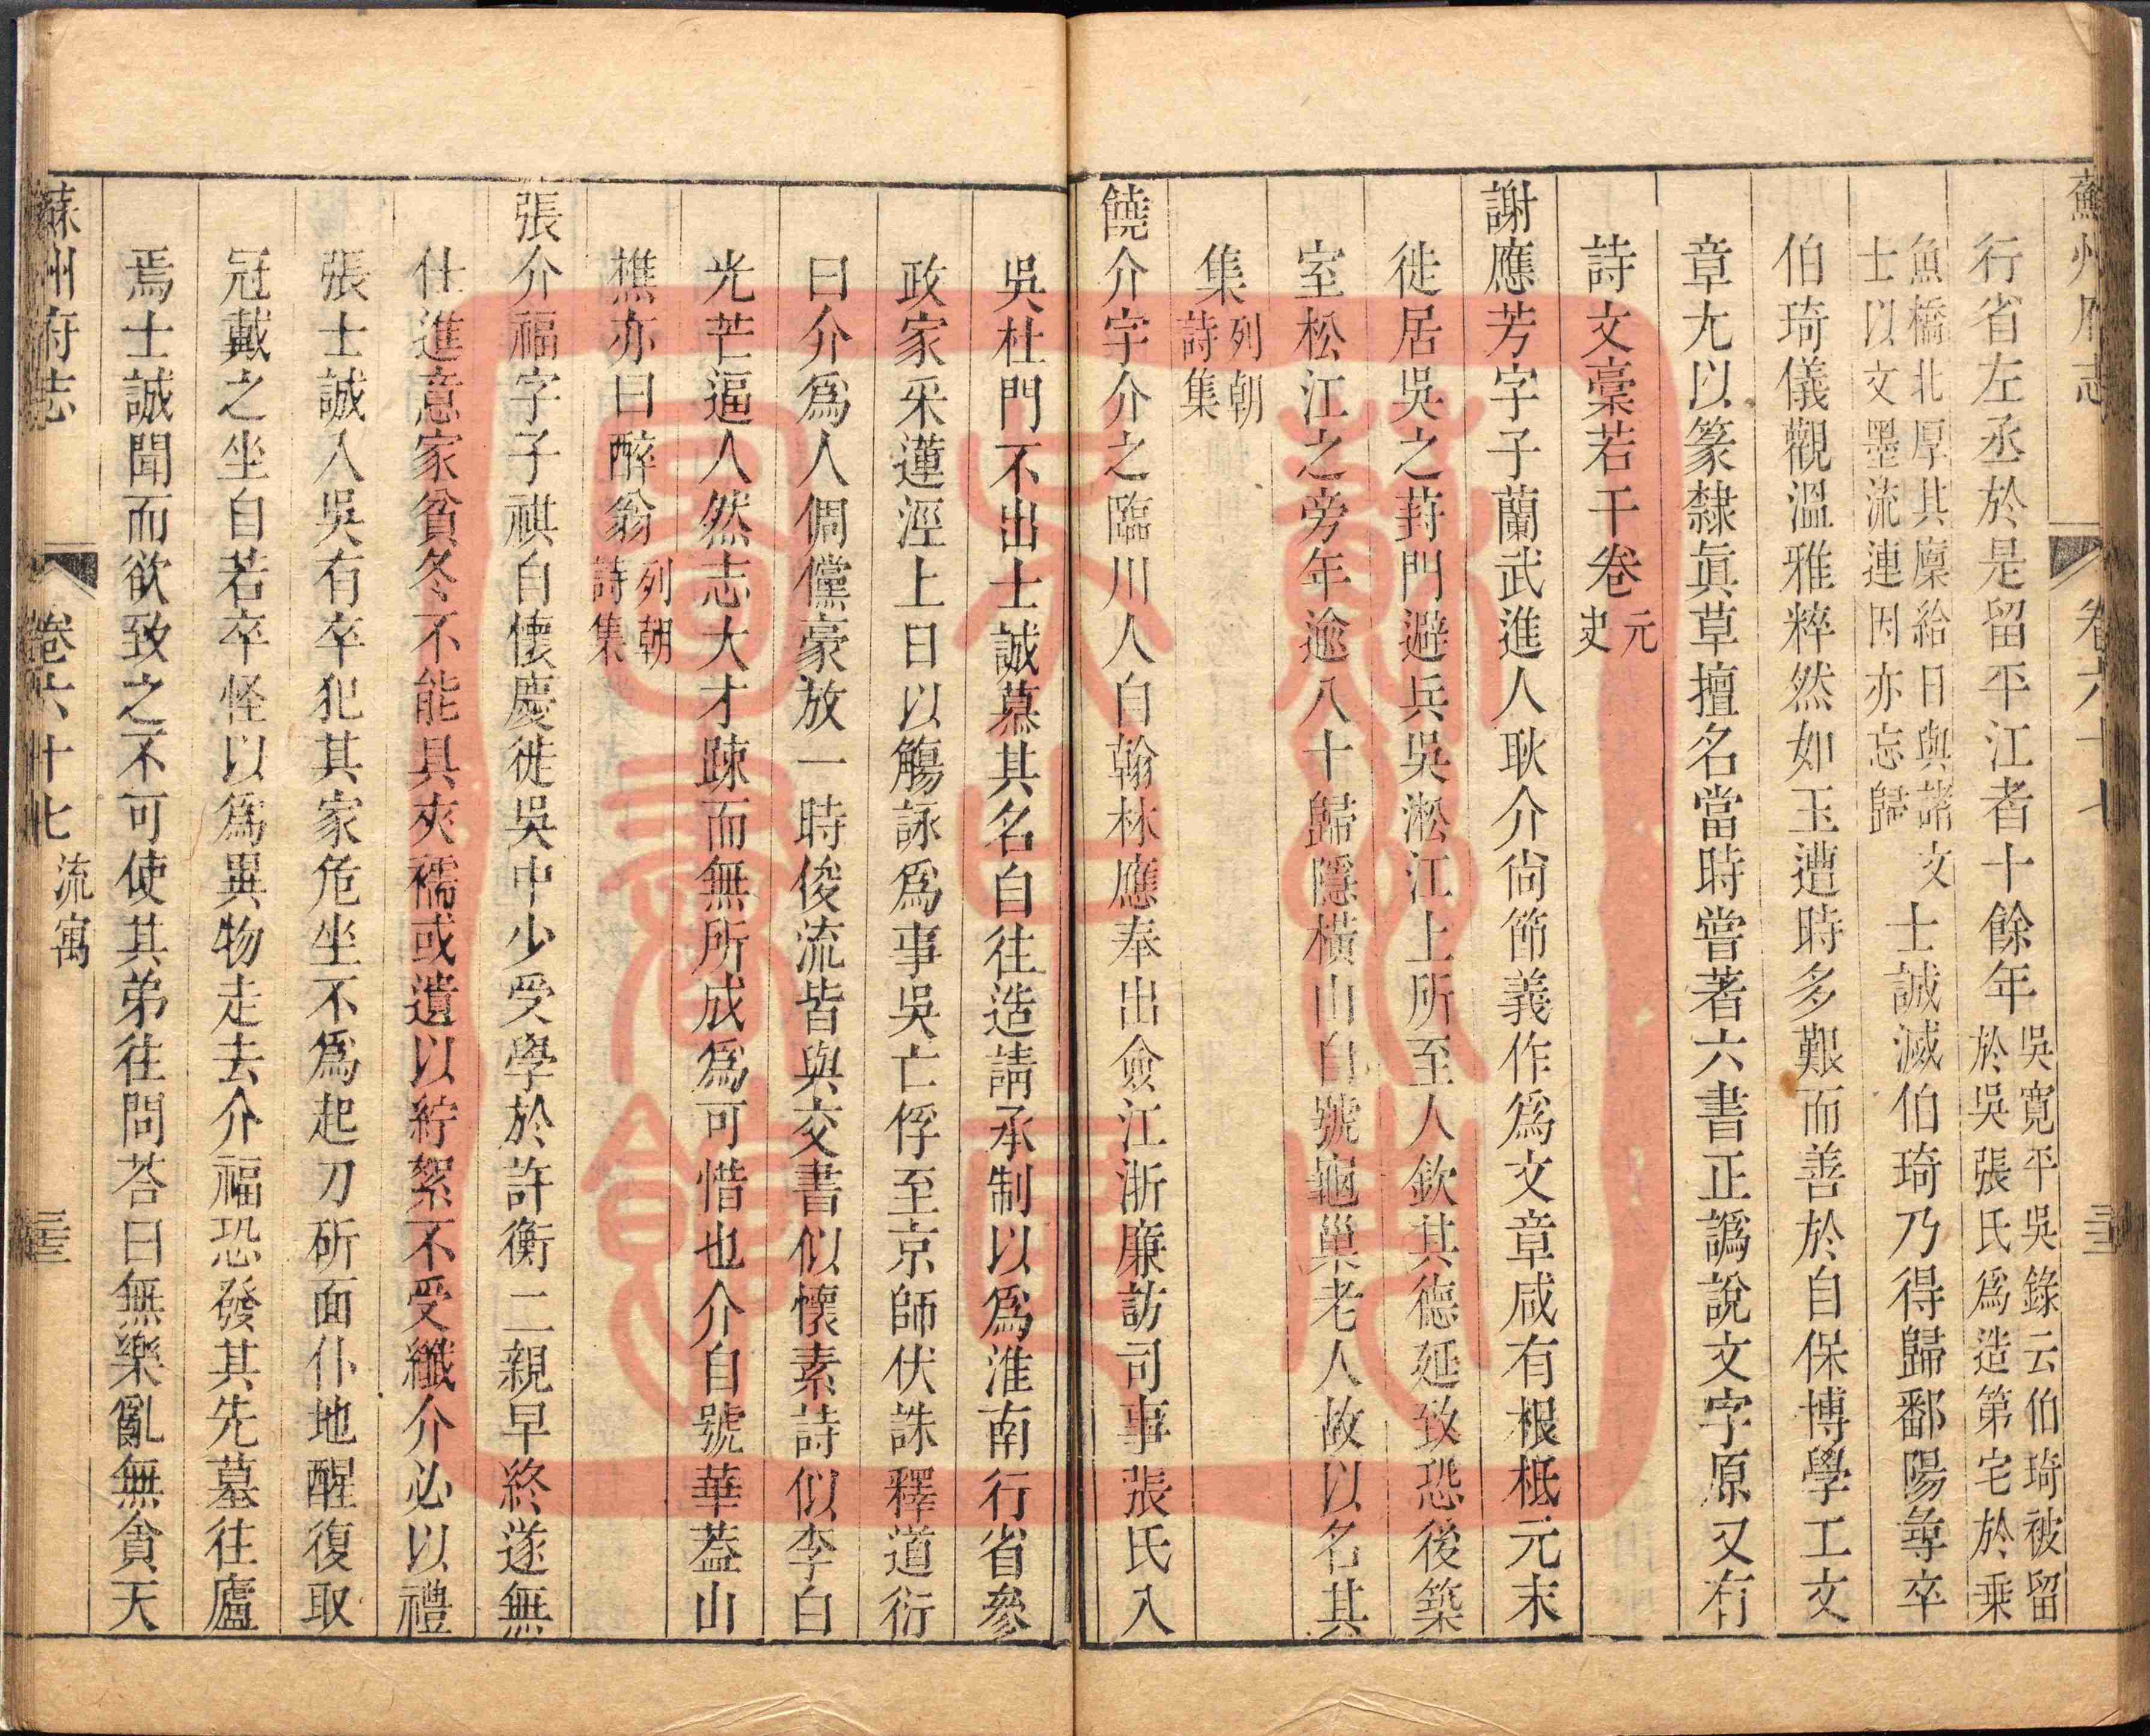 蘇州府志
卷六十七
行省左丞於是留平江者十餘年吳寬平吳錄云伯琦被留於吳張氏爲造第宅於乗
魚橋北厚其廩給日與諸文士以文墨流連因亦忘歸士誠滅伯琦乃得歸鄱陽尋卒
伯琦儀觀溫雅粹然如玉遭時多艱而善於自保博學工文
章尤以篆隸眞草擅名當時嘗著六書正譌說文字原又有
詩文稾若干卷元史
謝應芳字子蘭武進人耿介尙節義作爲文章咸有根柢元末
徙居吳之葑門避兵吳淞江上所至人欽其德延致恐後築
室松江之旁年逾八十歸隱橫山自號龜巢老人故以名其
集列朝詩集
饒介字介之臨川人自翰林應奉出僉江浙廉訪司事張氏入
吳杜門不出士誠慕其名自往造請承制以爲淮南行省參
政家采蓮涇上日以觴詠爲事吳亡俘至京師伏誅釋道衍
曰介爲人倜儻豪放一時俊流皆與交書似懷素詩似李白
光芒逼人然志大才踈而無所成爲可惜也介自號華葢山
樵亦曰醉翁列朝詩集
張介福字子祺自懷慶徙吳中少受學於許衡二親早終遂無
仕進意家貧冬不能具夾襦或遺以紵絮不受纖介必以禮
張士誠入吳有卒犯其家危坐不爲起刀斫面仆地醒復取
冠戴之坐自若卒怪以爲異物走去介福恐發其先墓往廬
焉士誠聞而欲致之不可使其弟往問荅曰無樂亂無貪天
蘇州府志
卷六十七
流寓